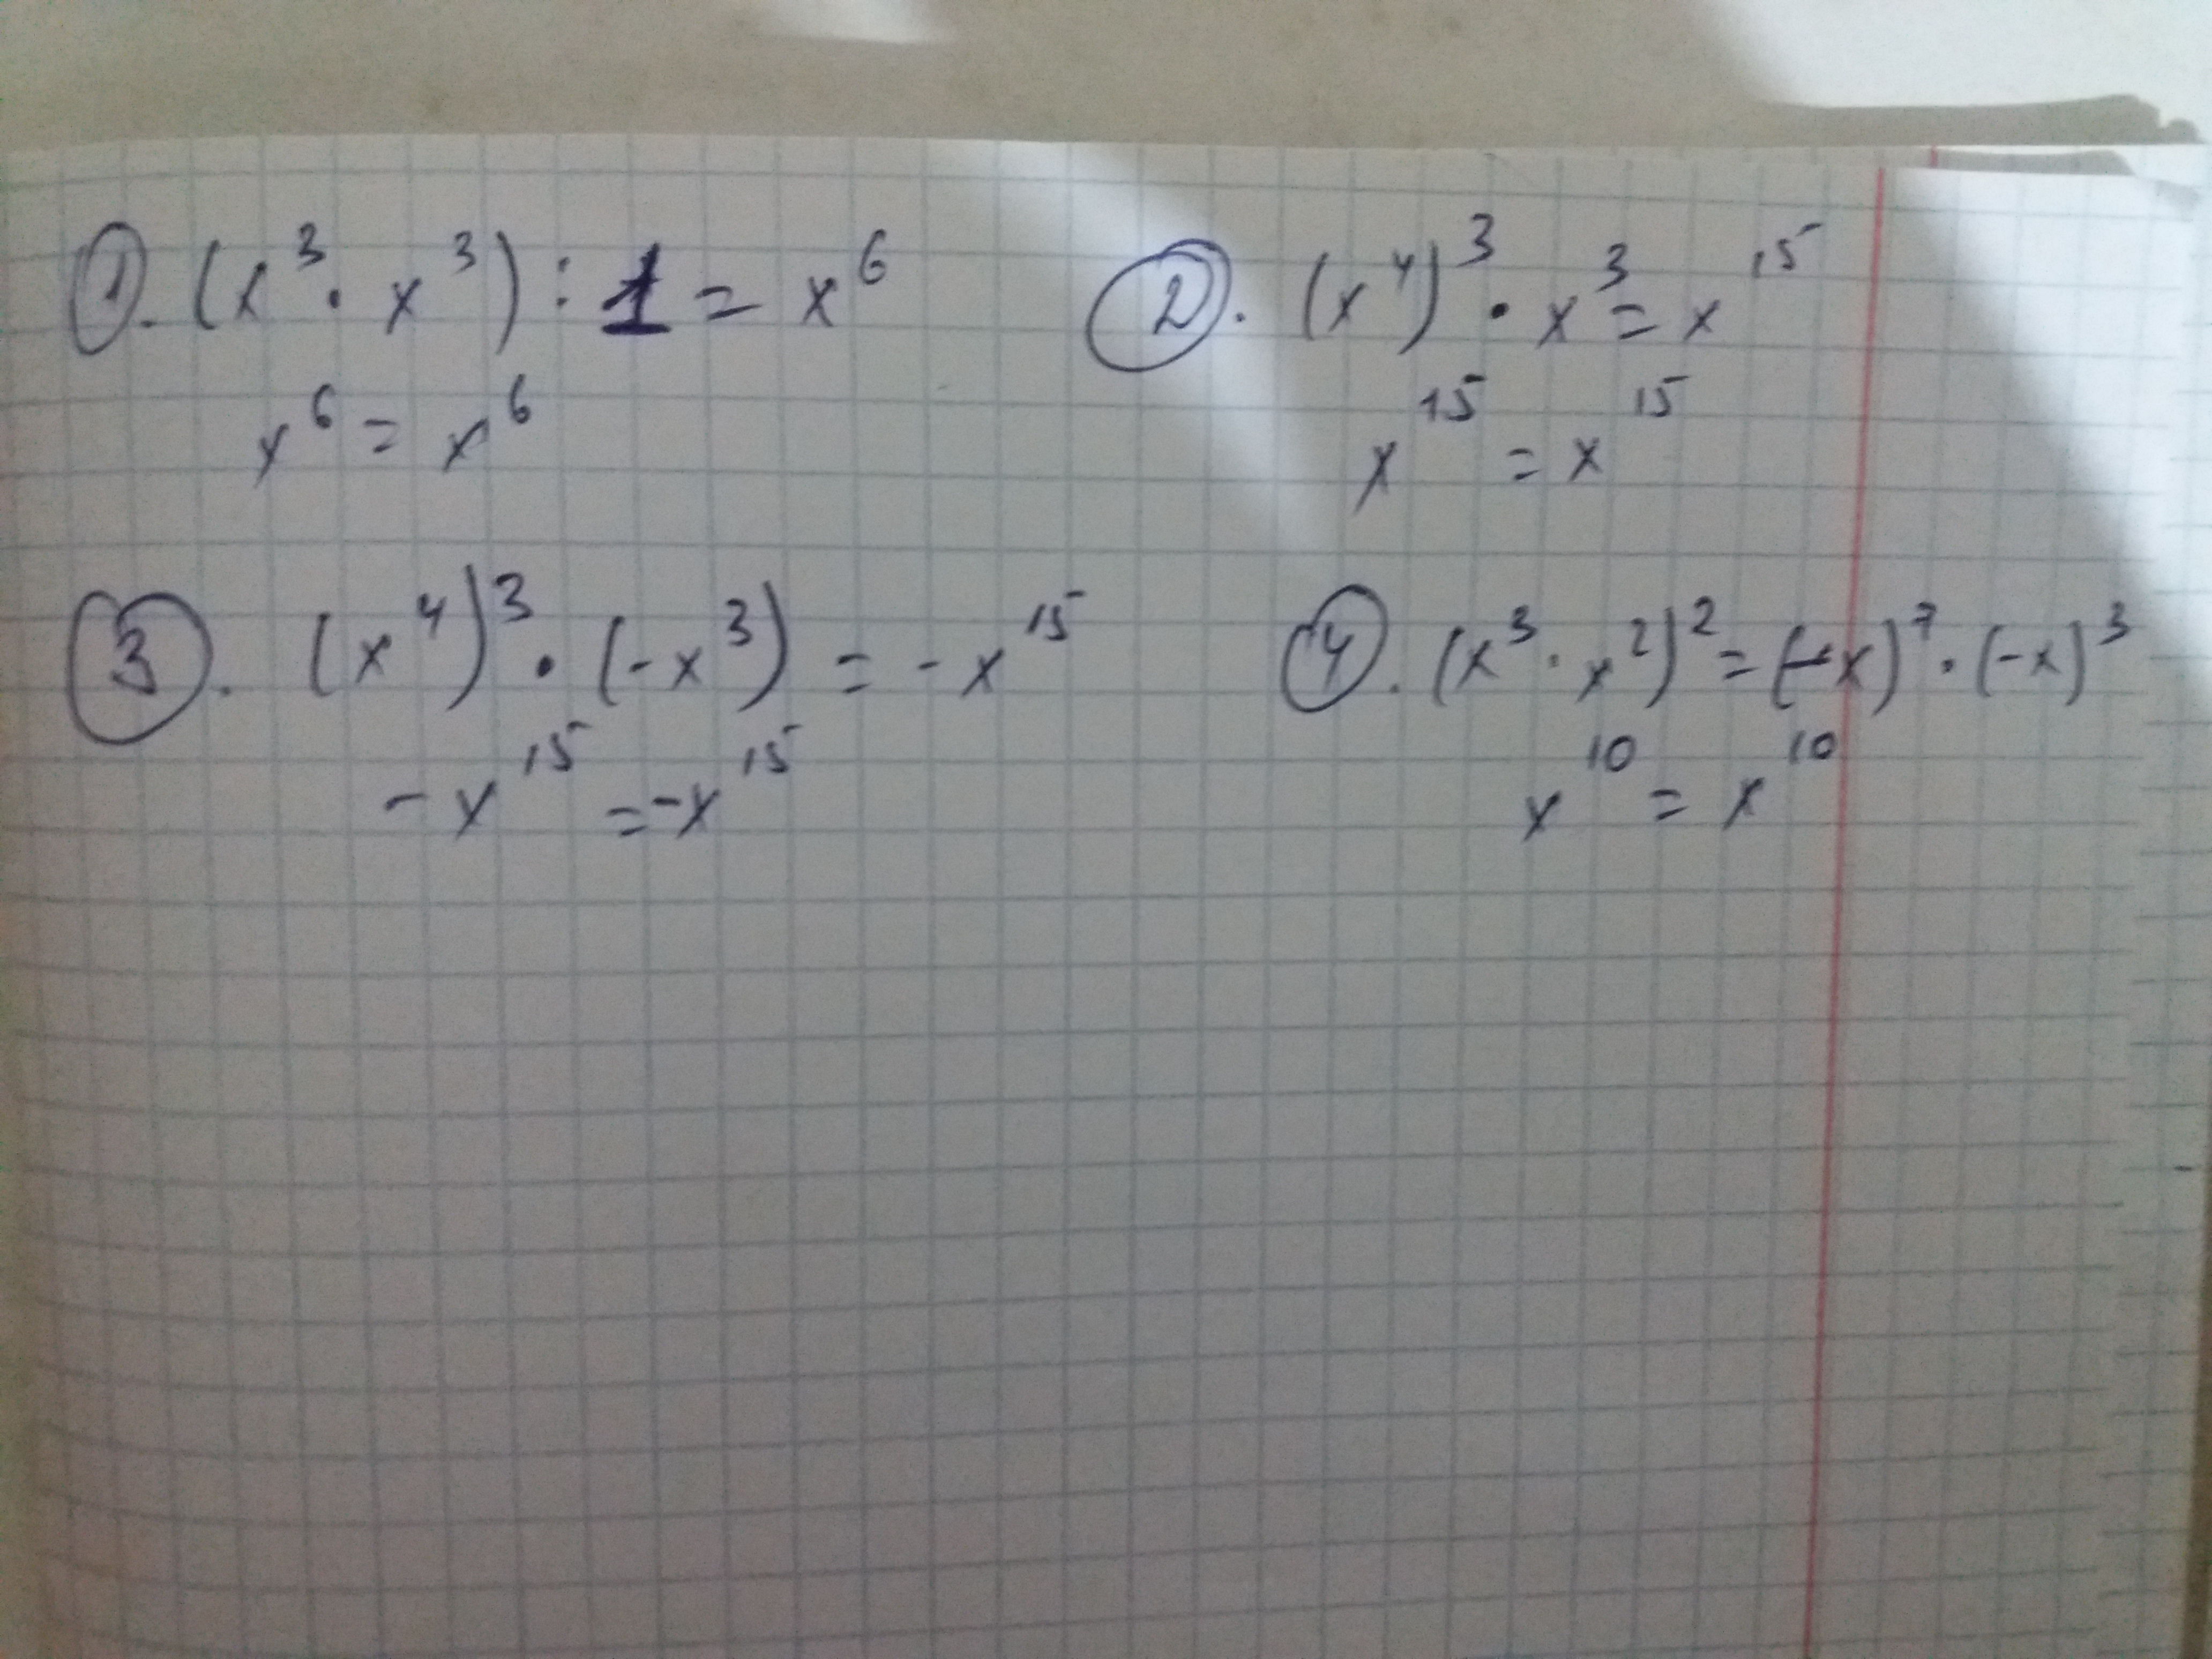 1. (x³ · x³) : 1 = x⁶
x⁶ = x⁶
2. (x⁴)³ · x³ = x¹⁵
x¹⁵ = x¹⁵
3. (x⁴)³ · (-x³) = -x¹⁵
-x¹⁵ = -x¹⁵
4. (x³ · x²)² = (-x)⁷ · (-x)³
x¹⁰ = x¹⁰